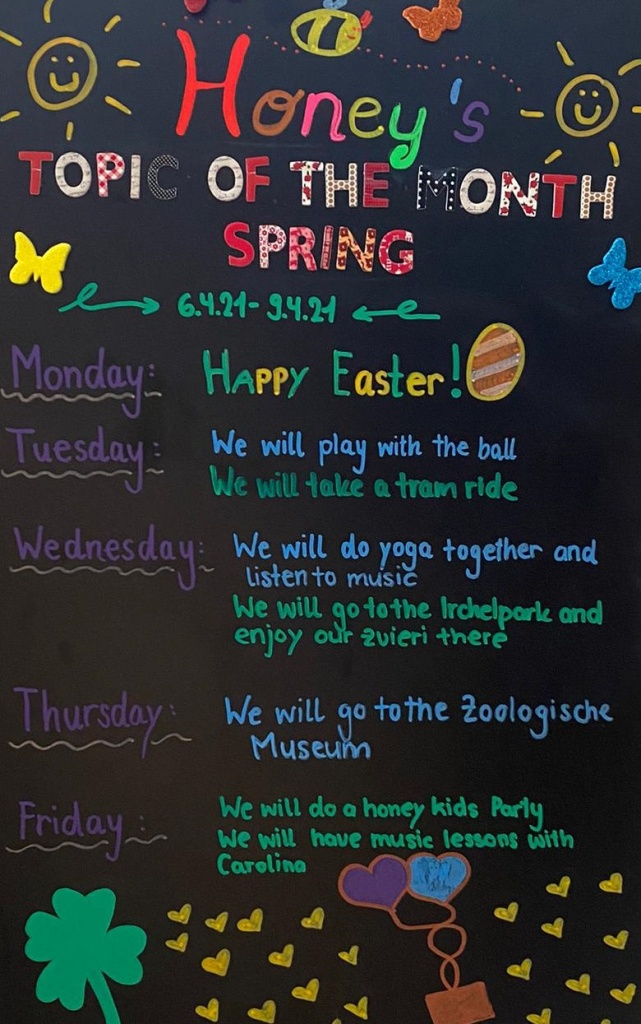 Honey's
TOPIC OF THE MONTH
SPRING
6.4.21 - 9.4.21
Monday: HAPPY Easter!
Tuesday: We will play with the ball
We will take a tram ride
Wednesday: We will do yoga together and
listen to music
We will go to the Irchelpark and
enjoy our zvieri there
Thursday: We will go to the Zoologische
Museum
Friday: We will do a honey kids Party
We will have music lessons with
Carolina